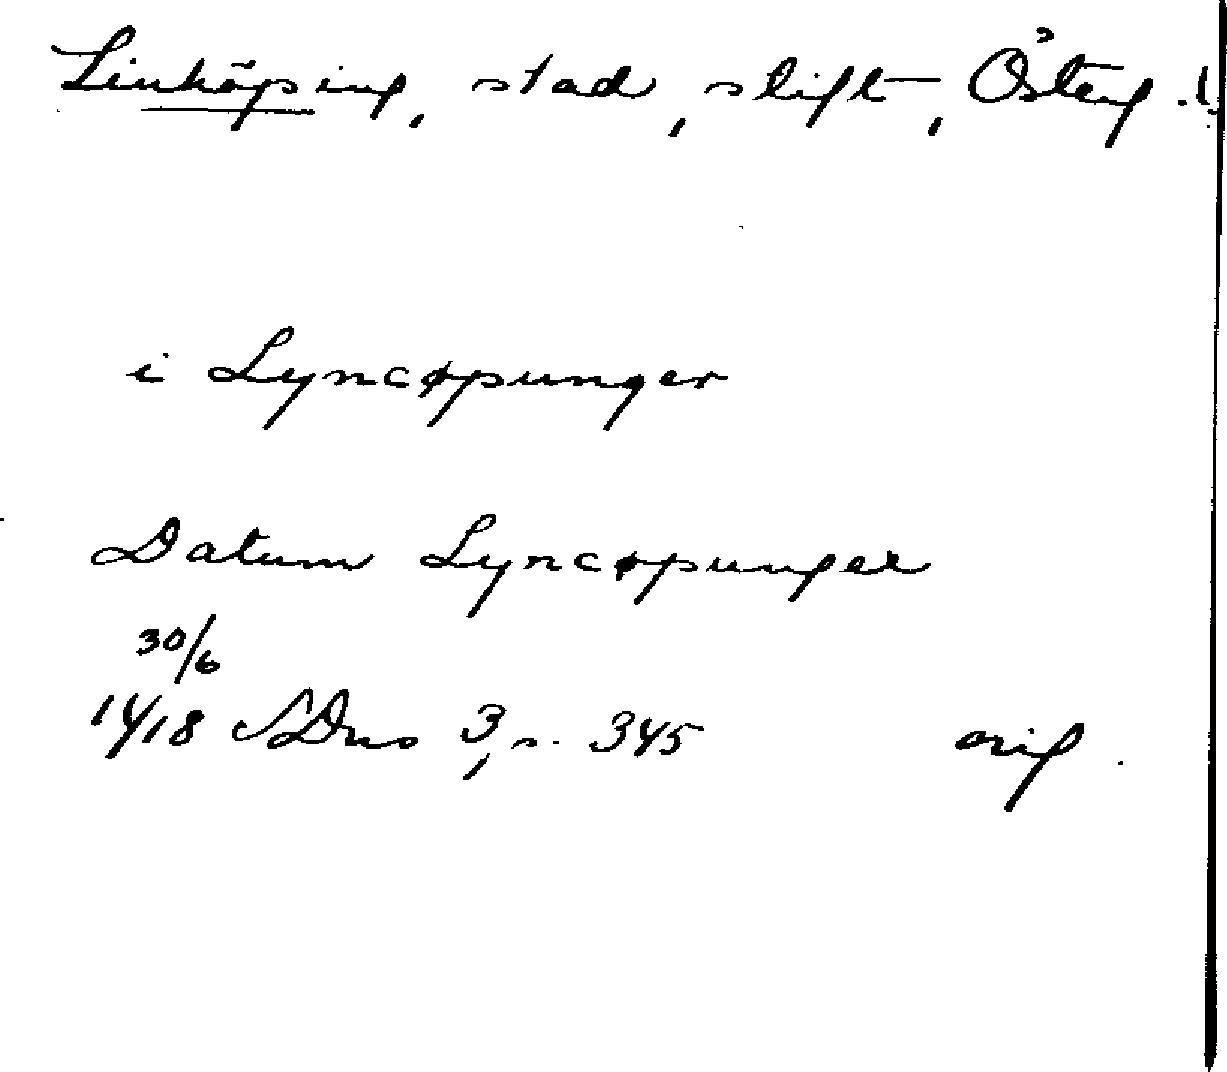 Linköping, stad, stift, Österg. l.
i Lyncøpunger
Datum Lyncøpunger
30/6
1418 SDns 3, s. 345 orig.